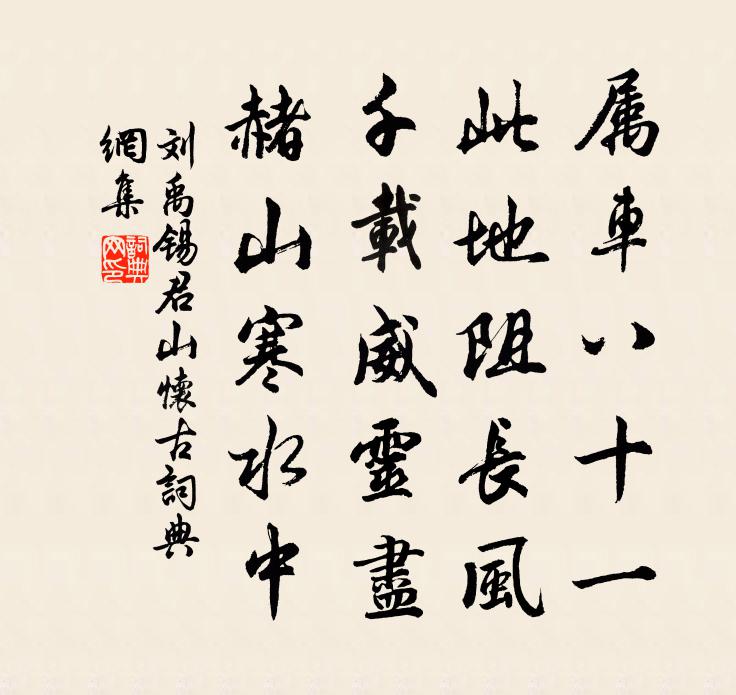 属車八十一
此地阻長風
千載威靈盡
赭山寒水中
刘禹锡君山懷古詞典
網集
詞典
网印